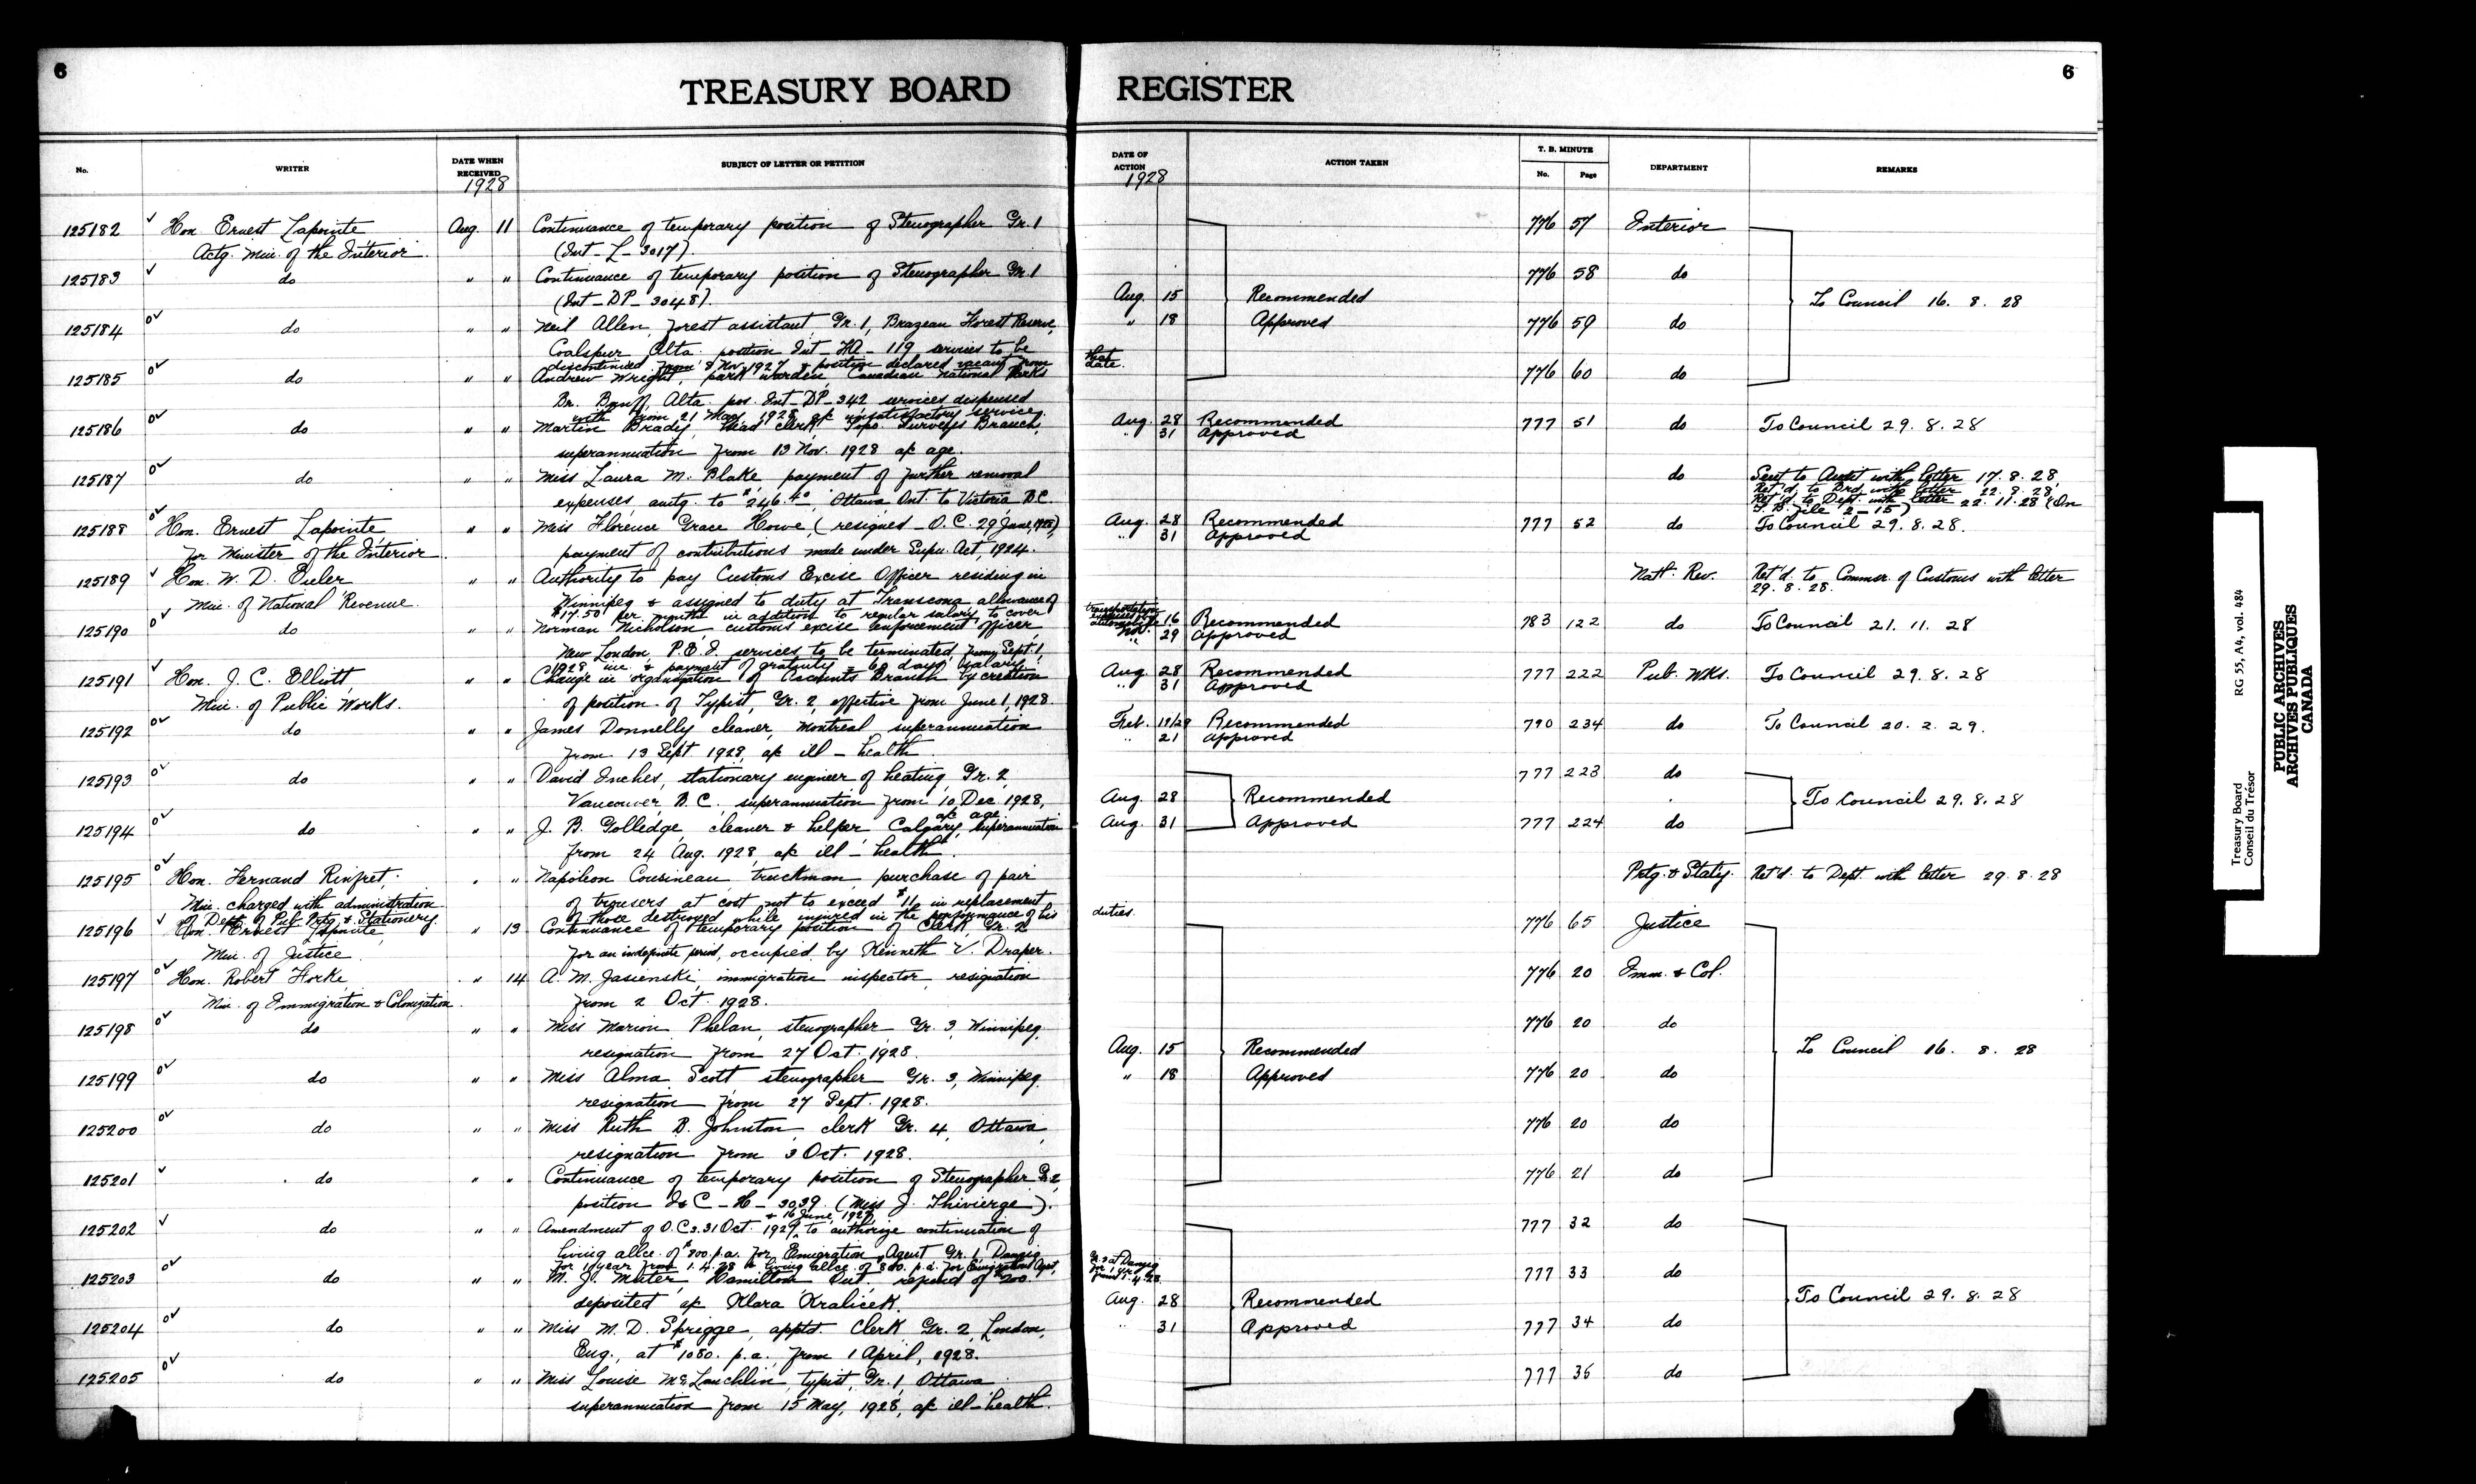 6
TREASURY BOARD REGISTER
6
No. WRITER DATE WHEN RECEIVED SUBJECT OF LETTER OR PETITION DATE OF ACTION ACTION TAKEN T. B. MINUTE No. Page DEPARTMENT REMARKS
1928 1928
125182 Hon Ernest Lapointe Aug. 11 Continuance of temporary position of Stenographer Gr. 1 776 57 Interior
Actg. Min. of the Interior (Int-L-3017).
125183 do " " Continuance of temporary position of Stenographer Gr. 1 776 58 do
(Int-DP-3048). Aug. 15 Recommended To Council 16. 8. 28
125184 do " " Neil Allen, forest assistant, Gr. 1, Brazeau Forest Reserve, " 18 Approved 776 59 do
Coalspur Alta. position Int-FA-119 services to be
discontinued from 8 Nov. 1927 & position declared vacant from that date.
125185 do " " Andrew Wright, park warden, Canadian National Parks 776 60 do
Br. Banff, Alta. pos. Int-DP-342 services dispensed
with from 21 May, 1928, a/c unsatisfactory service.
125186 do " " Martin Brady, Head Clerk, Topo. Surveys Branch, Aug. 28 Recommended 777 51 do To Council 29. 8. 28
" 31 Approved
superannuation from 13 Nov. 1928 a/c age.
125187 do " " Miss Laura M. Blake payment of further removal do Sent to Audit with letter 17. 8. 28,
expenses, amtg. to $246.40, Ottawa, Ont. to Victoria B.C. Ret'd. to Brd. with letter 22. 9. 28,
Ret'd. to Dept. with letter 22. 11. 28 (On
T. B. File 2-15)
125188 Hon. Ernest Lapointe " " Miss Florence Grace Howe, (resigned - O.C. 29 June, 1928), Aug. 28 Recommended 777 52 do To Council 29. 8. 28.
" 31 Approved
for Minister of the Interior payment of contributions made under Supn. Act, 1924.
125189 Hon. W. D. Euler " " Authority to pay Customs Excise Officer residing in Nat'l. Rev. Ret'd. to Commsr. of Customs with letter
29. 8. 28.
Min. of National Revenue Winnipeg & assigned to duty at Transcona allowance of
$17.50 per month in addition to regular salary to cover transportation
125190 do " " Norman Nicholson, customs excise enforcement officer, Nov. 16 Recommended 783 122 do To Council 21. 11. 28
" 29 Approved
New London, P.E.I. services to be terminated from Sept. 1,
1928 inc. & payment of gratuity = 60 days' salary.
125191 Hon. J. C. Elliott " " Change in organization of Accounts Branch by creation Aug. 28 Recommended 777 222 Pub. Wks. To Council 29. 8. 28
" 31 Approved
Min. of Public Works. of position of Typist, Gr. 2, effective from June 1, 1928.
125192 do " " James Donnelly cleaner, Montreal superannuation Feb. 19/29 Recommended 790 234 do To Council 20. 2. 29.
" 21 Approved
from 13 Sept 1928, a/c ill-health
125193 do " " David Inches, stationary engineer of heating, Gr. 2, 777 223 do
Vancouver, B.C. superannuation from 10 Dec. 1928, Aug. 28 Recommended To Council 29. 8. 28
a/c age.
125194 do " " J. B. Golledge, cleaner & helper Calgary, superannuation Aug. 31 Approved 777 224 do
from 24 Aug. 1928, a/c ill-health.
125195 Hon. Fernand Rinfret, " " Napoleon Cousineau, truckman, purchase of pair Prtg. & Staty. Ret'd. to Dept. with letter 29. 8. 28
Min. charged with administration of trousers at cost not to exceed $11, in replacement
of Dept. of Pub. Prtg. & Stationery. of those destroyed while injured in the performance of his duties.
125196 Hon. Ernest Lapointe, " 13 Continuance of temporary position of Clerk, Gr. 2 776 65 Justice
Min. of Justice for an indefinite period, occupied by Kenneth V. Draper.
125197 Hon. Robert Forke, " 14 A. M. Jasienski, immigration inspector, resignation 776 20 Imm. & Col.
Min. of Immigration & Colonization from 2 Oct. 1928.
125198 do " " Miss Marion Phelan, stenographer Gr. 3, Winnipeg, 776 20 do
resignation from 27 Oct. 1928. Aug. 15 Recommended To Council 16. 8. 28
125199 do " " Miss Alma Scott stenographer Gr. 3, Winnipeg, " 18 Approved 776 20 do
resignation from 27 Sept. 1928.
125200 do " " Miss Ruth B. Johnston, clerk Gr. 4, Ottawa, 776 20 do
resignation from 3 Oct. 1928.
125201 do " " Continuance of temporary position of Stenographer Gr. 2, 776 21 do
position I&C-H-3039 (Miss J. Thivierge).
& 16 June, 1927,
125202 do " " Amendment of O.Cs. 31 Oct. 1927, to authorize continuation of 777 32 do
living allce. of $800. p.a. for Emigration Agent Gr. 1, Danzig
for 1 year from 1.4.28 & living allce. of $ p.a. for Emigration Agent, Gr. 2 at Danzig for 1 yr. from 1.4.28.
125203 do " " M. J. Muter, Hamilton Ont. refund of $200. 777 33 do
deposited a/c Klara Kralicek. Aug. 28 Recommended To Council 29. 8. 28
125204 do " " Miss M. D. Sprigge, apptd. Clerk Gr. 2, London, " 31 Approved 777 34 do
Eng., at $1080. p.a. from 1 April, 1928.
125205 do " " Miss Louise McLauchlin, typist, Gr. 1, Ottawa 777 36 do
superannuation from 15 May, 1928, a/c ill-health.
Treasury Board RG 55, A4, vol. 484
Conseil du Trésor
PUBLIC ARCHIVES
ARCHIVES PUBLIQUES
CANADA